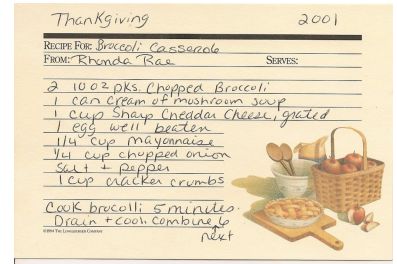 Thanksgiving 2001
RECIPE FOR: Broccoli Casserole
FROM: Rhonda Rae SERVES:
2 10 oz pks. Chopped Broccoli
1 can cream of mushroom soup
1 cup Sharp Cheddar Cheese, grated
1 egg well beaten
1/4 cup mayonnaise
1/4 cup chopped onion
Salt + pepper
1 cup cracker crumbs
Cook brocolli 5 minutes.
Drain + cool. Combine 6
next
©1994 THE LONGABERGER COMPANY